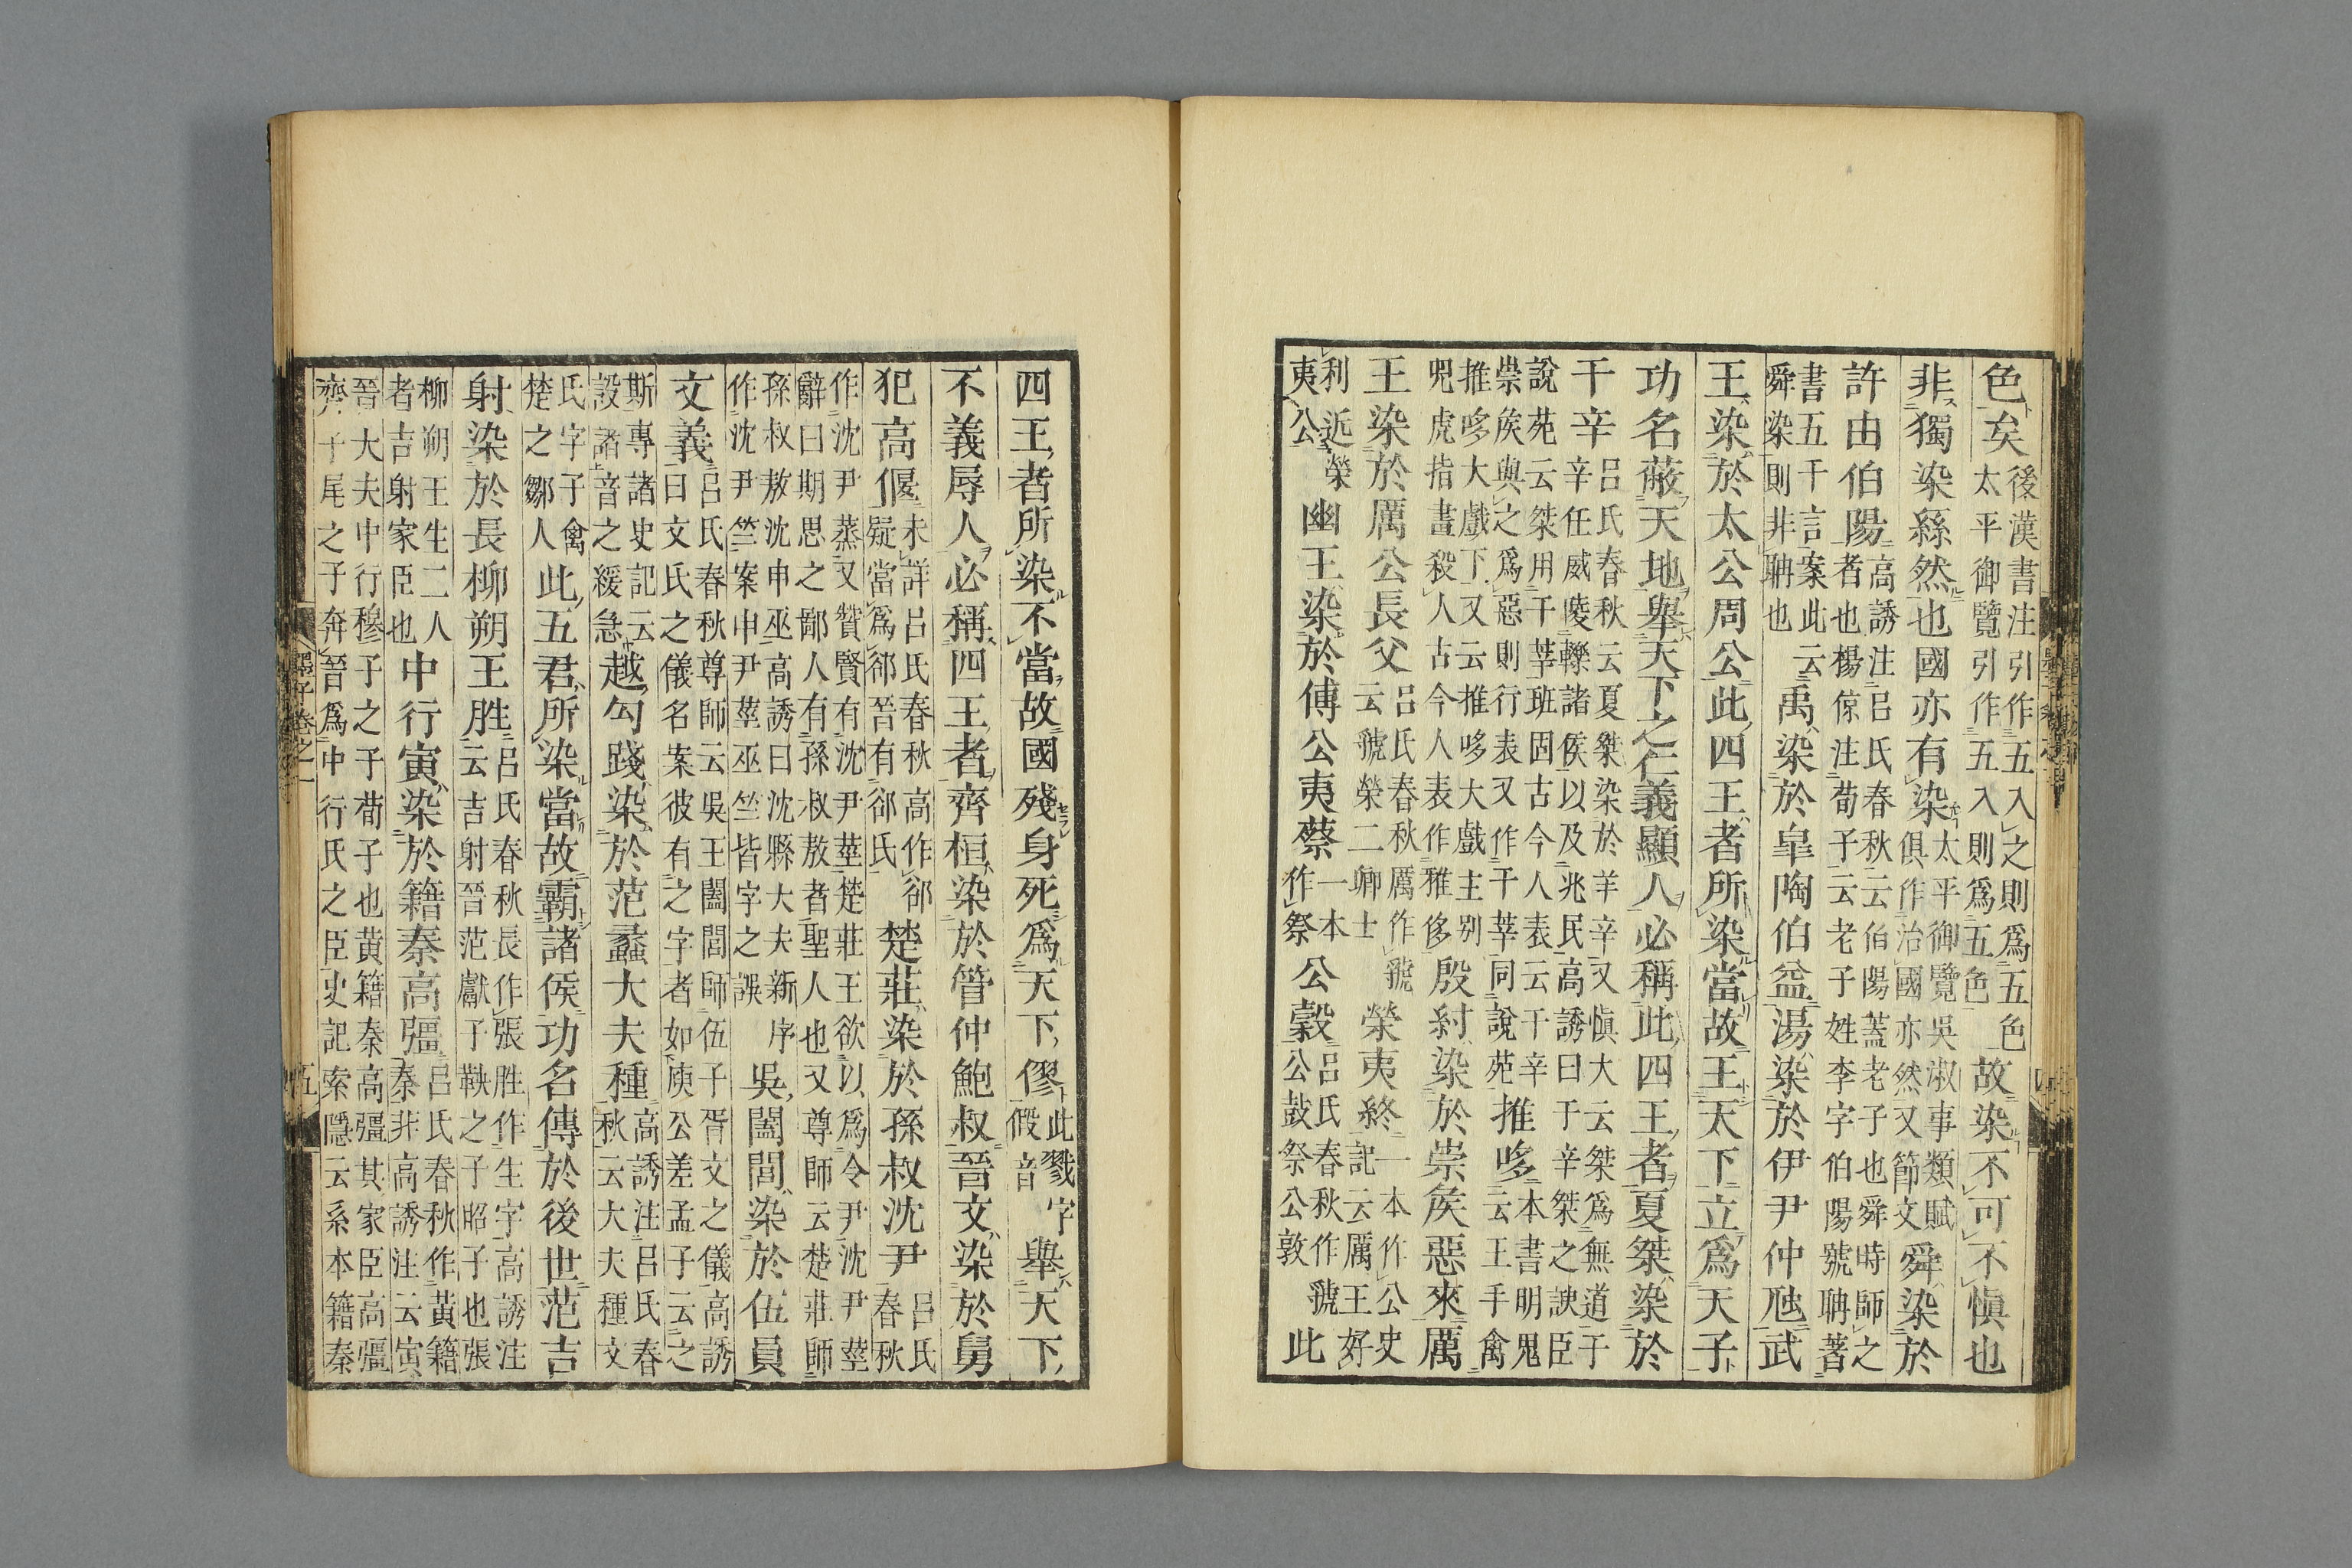 色矣後漢書注引作五入之則爲五色太平御覽引作五入則爲五色故染不可不愼也
非獨染絲然也國亦有染太平御覽吳淑事類賦俱作治國亦然又節文舜染於
許由伯陽高誘注呂氏春秋云伯陽蓋老子也舜時師之者也楊倞注荀子云老子姓李字伯陽號聃著
書五千言案此云舜染則非聃也禹染於皐陶伯益湯染於伊尹仲虺武
王染於太公周公此四王者所染當故王天下立爲天子
功名蔽天地舉天下之仁義顯人必稱此四王者夏桀染於
干辛呂氏春秋云夏桀染於羊辛又愼大云桀爲無道干辛任威陵轢諸侯以及兆民高誘曰干辛桀之諛臣
說苑云桀用干莘班固古今人表云干辛崇侯與之爲惡則行表又作干莘同說苑推哆本書明鬼云王手禽
推哆大戲下又云推哆大戲主別兕虎指畫殺人古今人表作雅侈殷紂染於崇侯惡來厲
王染於厲公長父呂氏春秋厲作虢云虢榮二卿士榮夷終一本作公史記云厲王好
利近榮夷公幽王染於傅公夷蔡一本作祭公穀呂氏春秋作虢公鼓祭公敦此
四王者所染不當故國殘身死爲天下僇此戮字假音舉天下
不義辱人必稱四王者齊桓染於管仲鮑叔晉文染於舅
犯高偃未詳呂氏春秋高作郤疑當爲郤晉有郤氏楚莊染於孫叔沈尹呂氏春秋
作沈尹蒸又贊賢有沈尹莖楚莊王欲以爲令尹沈尹莖辭曰期思之鄙人有孫叔敖者聖人也又尊師云楚莊師
孫叔敖沈申巫高誘曰沈縣大夫新序作沈尹竺案申尹莖巫竺皆字之誤吳闔閭染於伍員
文義呂氏春秋尊師云吳王闔閭師伍子胥文之儀高誘曰文氏之儀名案彼有之字者如庾公差孟子云之
斯專諸史記云設諸音之緩急越勾踐染於范蠡大夫種高誘注呂氏春秋云大夫種文
氏字子禽楚之鄒人此五君所染當故霸諸侯功名傳於後世范吉
射染於長柳朔王胜呂氏春秋長作張胜作生字高誘注云吉射晉范獻子鞅之子昭子也張
柳朔王生二人者吉射家臣也中行寅染於籍秦高彊呂氏春秋作黃籍秦非高誘注云寅
晉大夫中行穆子之子荀子也黃籍秦高彊其家臣高彊齊子尾之子奔晉爲中行氏之臣史記索隱云系本籍秦
墨子卷之一
五